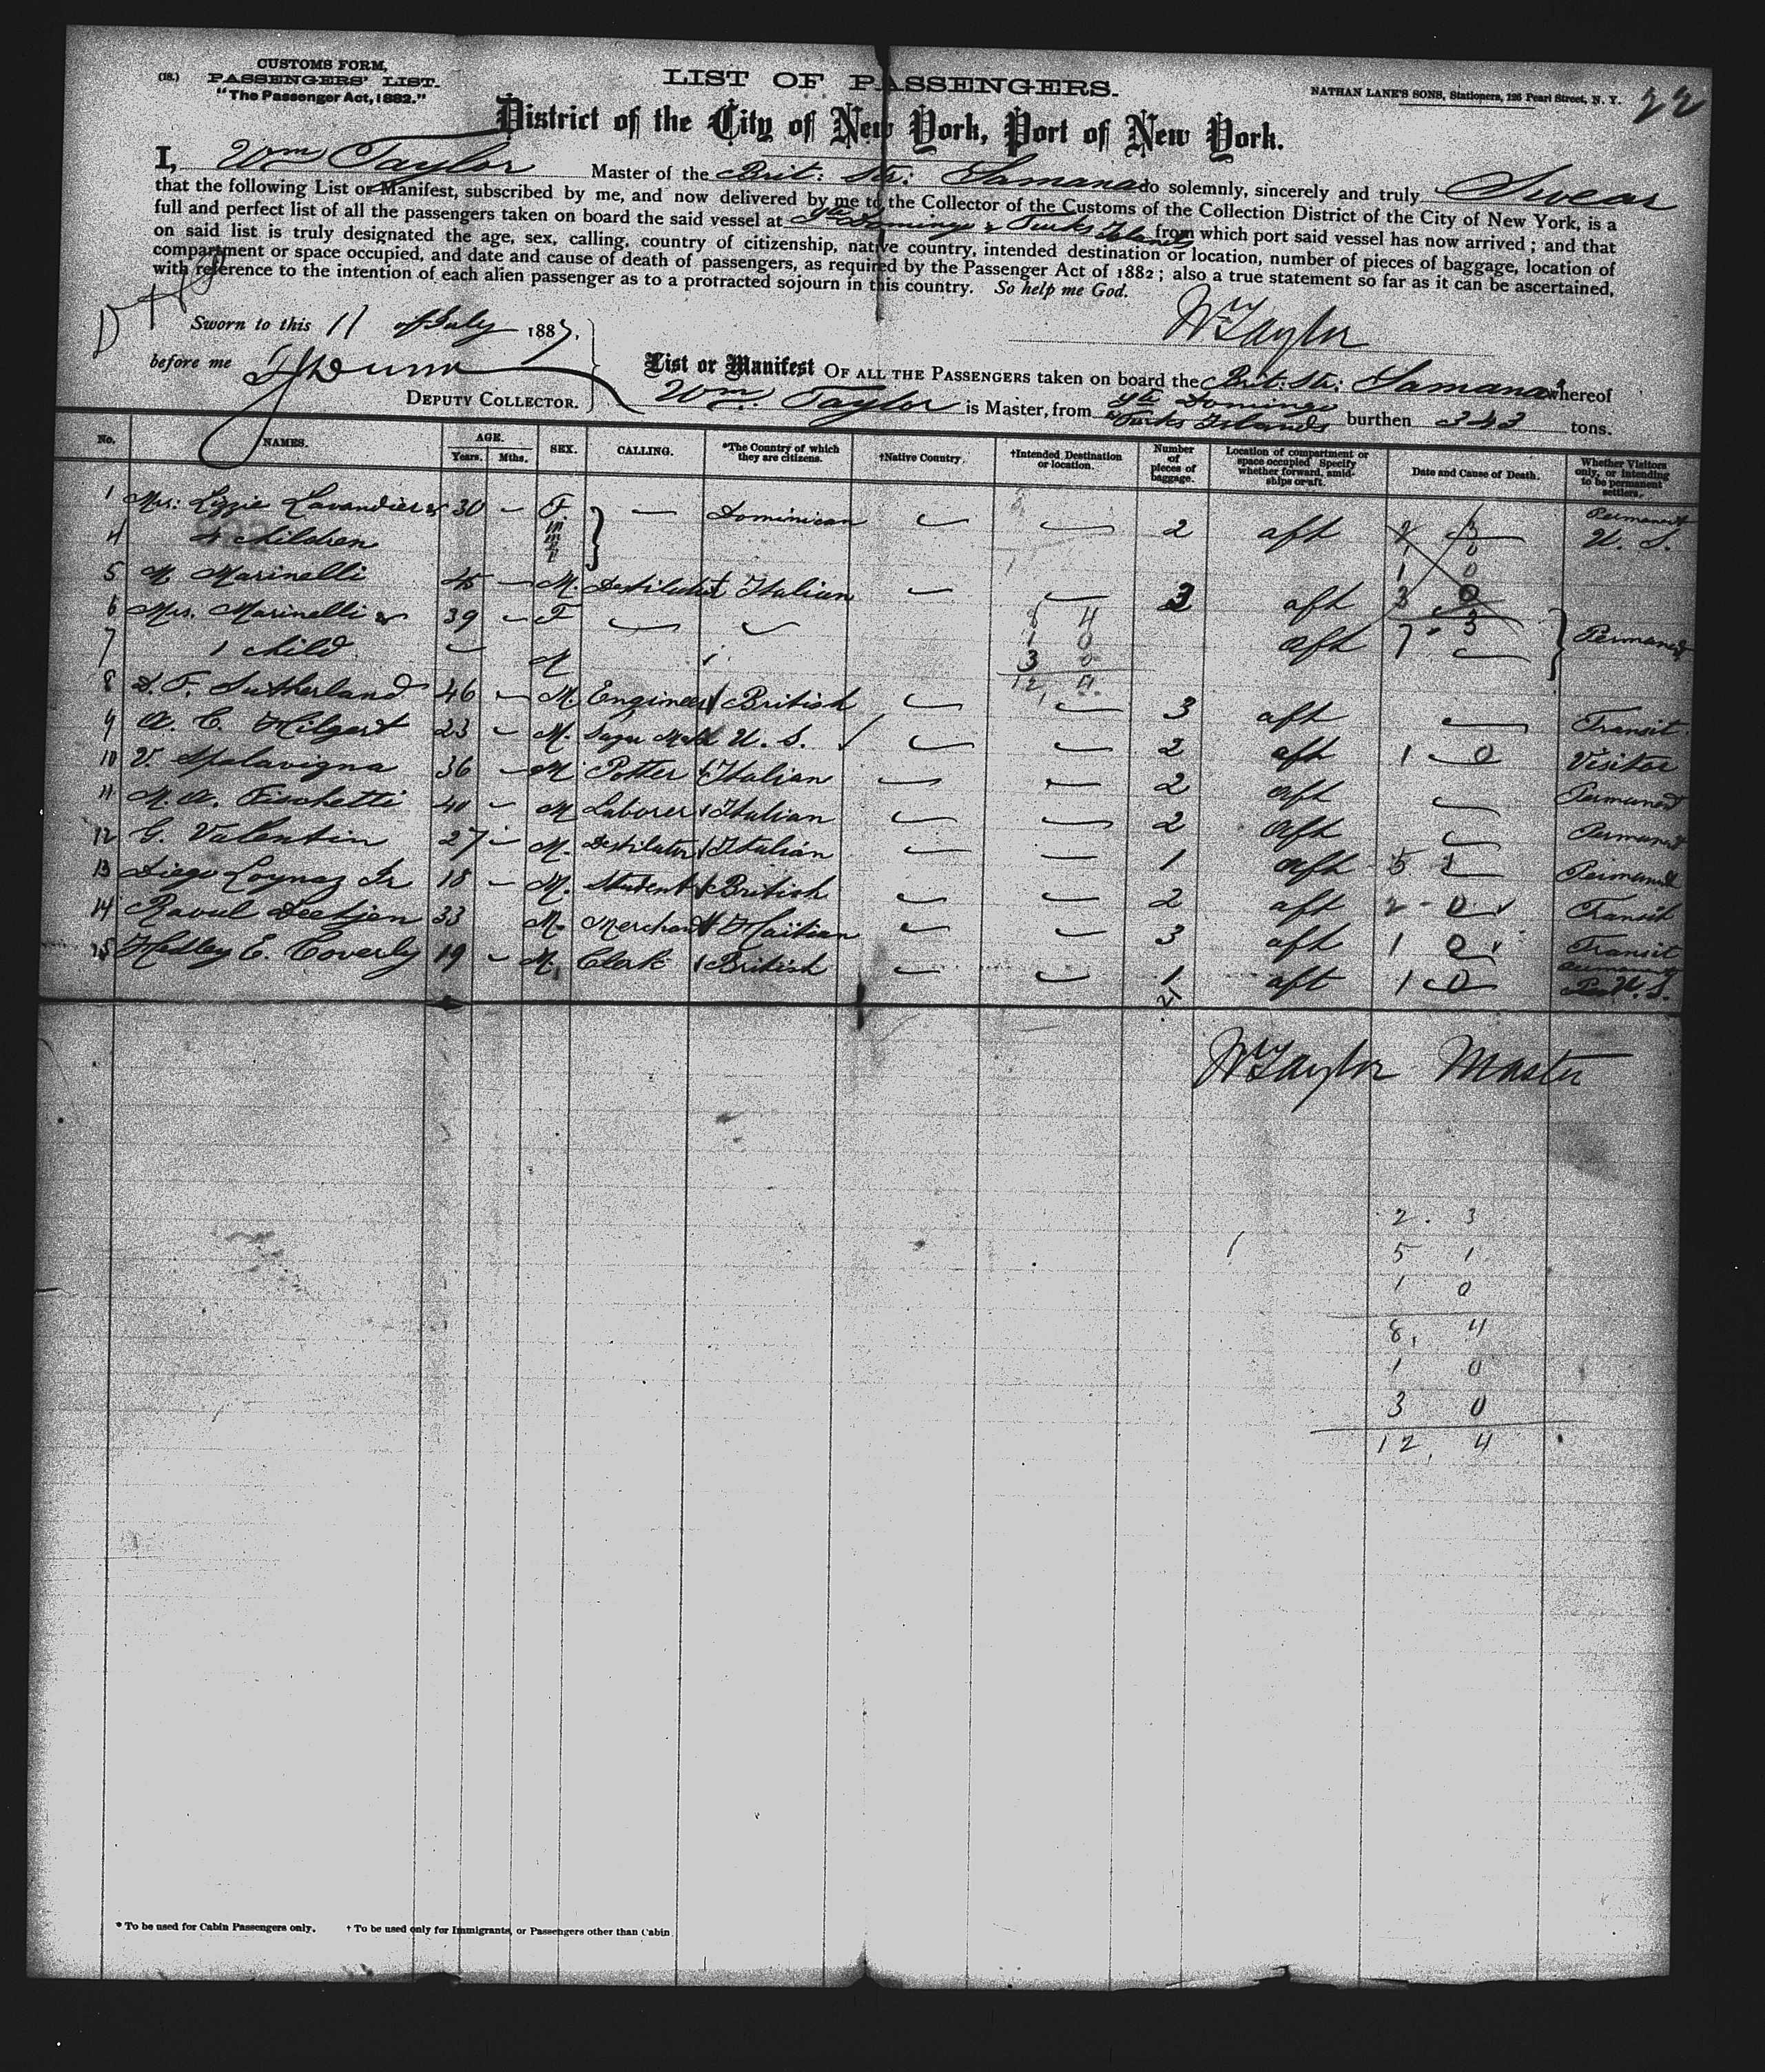 (18.) CUSTOMS FORM,
PASSENGERS' LIST.
"The Passenger Act, 1882."
LIST OF PASSENGERS.
NATHAN LANE'S SONS, Stationers, 126 Pearl Street, N. Y.
22
District of the City of New York, Port of New York.
I, Wm Taylor Master of the Brit: Str: Samana do solemnly, sincerely and truly Swear
that the following List or Manifest, subscribed by me, and now delivered by me to the Collector of the Customs of the Collection District of the City of New York, is a
full and perfect list of all the passengers taken on board the said vessel at Sto Domingo & Turks Islands from which port said vessel has now arrived; and that
on said list is truly designated the age, sex, calling, country of citizenship, native country, intended destination or location, number of pieces of baggage, location of
compartment or space occupied, and date and cause of death of passengers, as required by the Passenger Act of 1882; also a true statement so far as it can be ascertained,
with reference to the intention of each alien passenger as to a protracted sojourn in this country. So help me God.
Sworn to this 11 of July 1887.
Wm Taylor
before me TJ Dunn
DEPUTY COLLECTOR.
List or Manifest OF ALL THE PASSENGERS taken on board the Brit: Str: Samana whereof
Wm. Taylor is Master, from Sto Domingo & Turks Islands burthen 343 tons.
No. NAMES. AGE. Years. Mths. SEX. CALLING. *The Country of which they are citizens. †Native Country. †Intended Destination or location. Number of pieces of baggage. Location of compartment or space occupied. Specify whether forward, amidships or aft. Date and Cause of Death. Whether Visitors only, or intending to be permanent settlers.
1 Mrs: Lizzie Lavandier & 30 — F. — Dominican 2 aft Permanent U. S.
4 4 children
5 M Marinelli 45 — M. Italian 3 aft
6 Mrs. Marinelli & 39 — F aft Permanent
7 1 child M
8 D. F. Sutherland 46 — M. Engineer British 3 aft Transit
9 A. C. Hilgert 23 — M. U. S. 2 aft 1 0 Visitor
10 V. Spalavigna 36 — M Potter Italian 2 aft Permanent
11 M. A. Fischetti 40 — M Laborer Italian 2 aft Permanent
12 G. Valentin 27 — M. Italian 1 aft 5 1 Permanent
13 Diego Loynaz Jr 18 — M. Student British 2 aft 2 0 Transit
14 Raoul Deetjen 33 M. Merchant Haitian 3 aft 1 0 Transit
15 Hedley E. Coverly 19 — M. Clerk British 1 aft 1 0 U. S.
21
8 4
1 0
3 0
12, 4
7 - 3
Wm Taylor Master
2. 3
5 1
1 0
8, 4
1 0
3 0
12, 4
* To be used for Cabin Passengers only. † To be used only for Immigrants, or Passengers other than Cabin